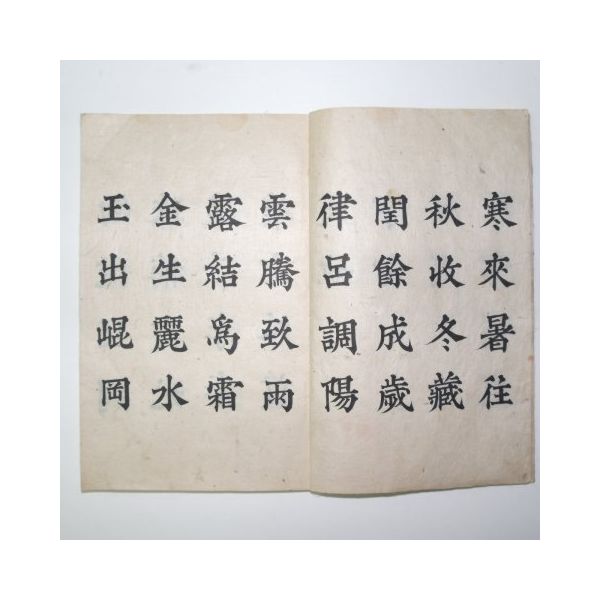 寒來暑往
秋收冬藏
閏餘成歲
律呂調陽
雲騰致雨
露結爲霜
金生麗水
玉出崐岡